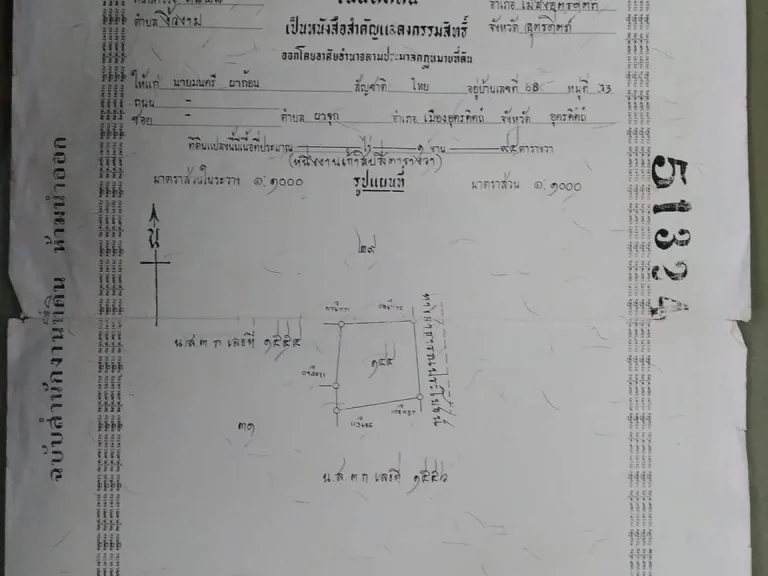 ตำบล งิ้วงาม
อำเภอ เมืองอุตรดิตถ์
จังหวัด อุตรดิตถ์
เป็นหนังสือสำคัญแสดงกรรมสิทธิ์
ออกโดยอาศัยอำนาจตามประมวลกฎหมายที่ดิน
ให้แก่ นายมนตรี ผาก้อน สัญชาติ ไทย อยู่บ้านเลขที่ 88 หมู่ที่
ถนน -
ซอย - ตำบล ผาจุก อำเภอ เมืองอุตรดิตถ์ จังหวัด อุตรดิตถ์
ที่ดินแปลงนี้มีเนื้อที่ประมาณ - ไร่ ๑ งาน ๙๕ ตารางวา
(หนึ่งงานเก้าสิบสี่ตารางวา)
มาตราส่วนในระวาง ๑:๑๐๐๐ รูปแผนที่ มาตราส่วน ๑:๑๐๐๐
น
๒๙
น.ส.ต.ก. เลขที่
๑๕๕
ทางสาธารณประโยชน์
๓๑
น.ส.ต.ก. เลขที่
ฉบับสำนักงานที่ดิน ห้ามนำออก
51324